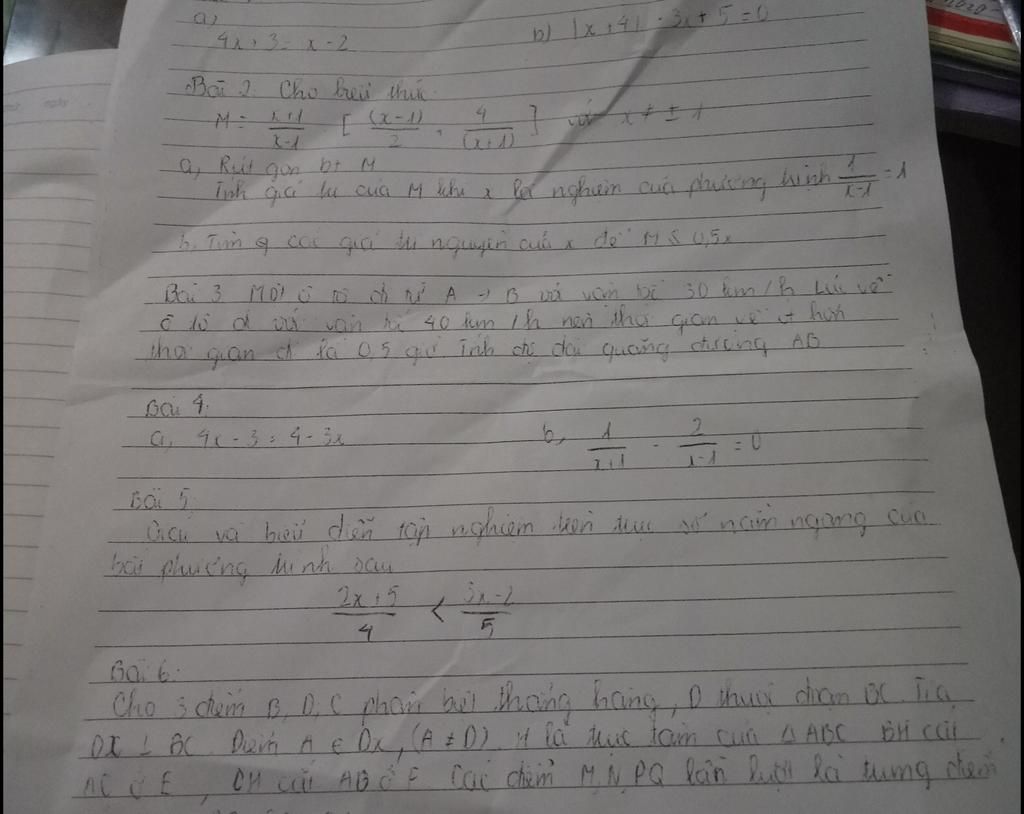 a)
4x+3=x-2
b) |x+4| - 3x+5=0
Bài 2. Cho biểu thức.
M = \frac{x+1}{x-1} [ \frac{(x-1)}{2} . \frac{4}{(x+1)} ] với x ≠ ± 1
a, Rút gọn bt M
Tính giá trị của M khi x là nghiệm của phương trình \frac{1}{x-1} = 1
b, Tìm các giá trị nguyên của x để M ≤ 0,5x
Bài 3 Một ô tô đi từ A → B với vận tốc 30 km/h Lúc về
ô tô đi với vận tốc 40 km/h nên thời gian về ít hơn
thời gian đi là 0,5 giờ Tính độ dài quãng đường AB
Bài 4:
a, 4x-3=4-3x
b, \frac{1}{x+1} - \frac{2}{x-1} = 0
Bài 5
Giải và biểu diễn tập nghiệm trên trục số nằm ngang của
bất phương trình sau
\frac{2x+5}{4} < \frac{3x-2}{5}
Bài 6:
Cho 3 điểm B, D, C phân biệt thẳng hàng, D thuộc đoạn BC. Tia
DX ⊥ BC. Điểm A ∈ Dx, (A ≠ D) H là trực tâm của △ ABC BH cắt
AC ở E, CH cắt AB ở F Các điểm M, N, P, Q lần lượt là trung điểm